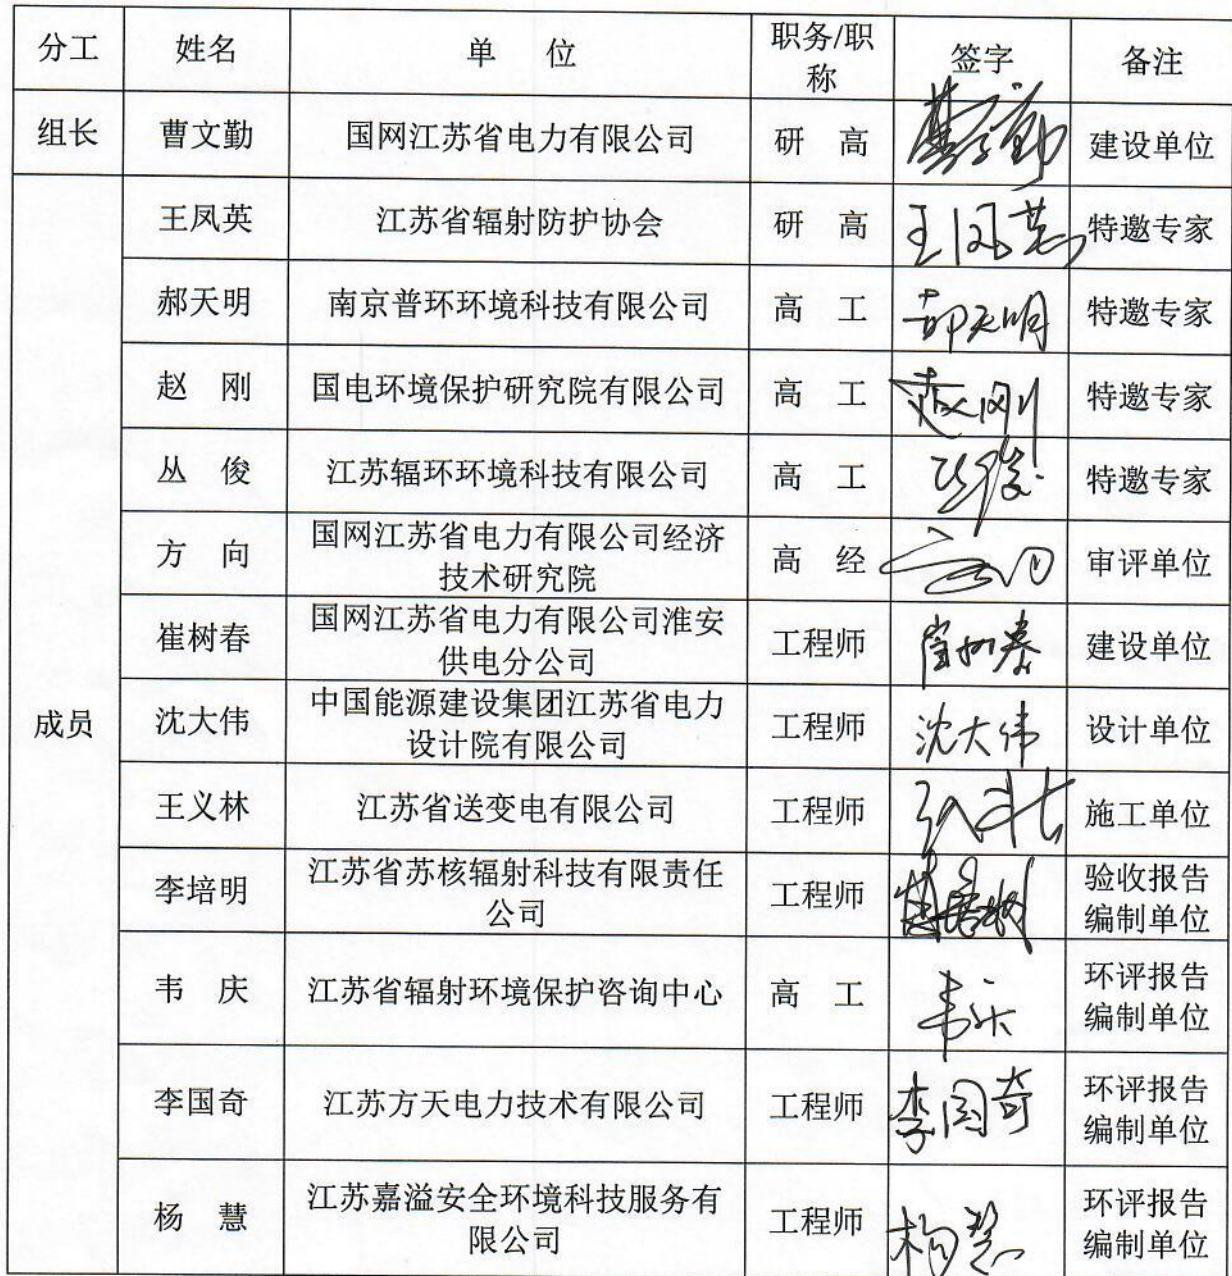 分工 姓名 单 位 职务/职称 签字 备注
组长 曹文勤 国网江苏省电力有限公司 研 高 曹文勤 建设单位
成员
王凤英 江苏省辐射防护协会 研 高 王凤英 特邀专家
郝天明 南京普环环境科技有限公司 高 工 郝天明 特邀专家
赵 刚 国电环境保护研究院有限公司 高 工 赵刚 特邀专家
丛 俊 江苏辐环环境科技有限公司 高 工 丛俊 特邀专家
方 向 国网江苏省电力有限公司经济技术研究院 高 经 方向 审评单位
崔树春 国网江苏省电力有限公司淮安供电分公司 工程师 崔树春 建设单位
沈大伟 中国能源建设集团江苏省电力设计院有限公司 工程师 沈大伟 设计单位
王义林 江苏省送变电有限公司 工程师 施工单位
李培明 江苏省苏核辐射科技有限责任公司 工程师 验收报告编制单位
韦 庆 江苏省辐射环境保护咨询中心 高 工 韦庆 环评报告编制单位
李国奇 江苏方天电力技术有限公司 工程师 李国奇 环评报告编制单位
杨 慧 江苏嘉溢安全环境科技服务有限公司 工程师 杨慧 环评报告编制单位